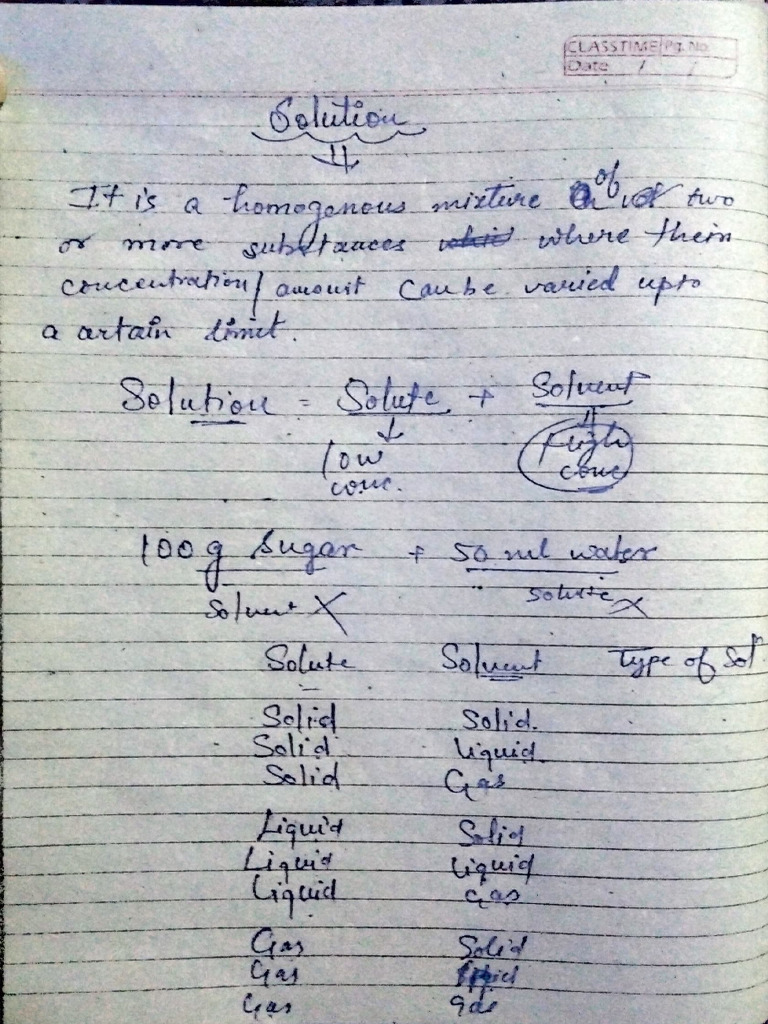 CLASSTIME Pg. No.
Date / /
Solution
It is a homogenous mixture of two
or more substances where their
concentration/amount can be varied upto
a artain limit.
Solution = Solute + Solvent
low conc.
High conc
100g Sugar + 50 ml water
Solvent X solute X
Solute Solvent Type of Solⁿ
Solid Solid.
Solid Liquid
Solid Gas
Liquid Solid
Liquid Liquid
Liquid Gas
Gas Solid
Gas
Gas Gas